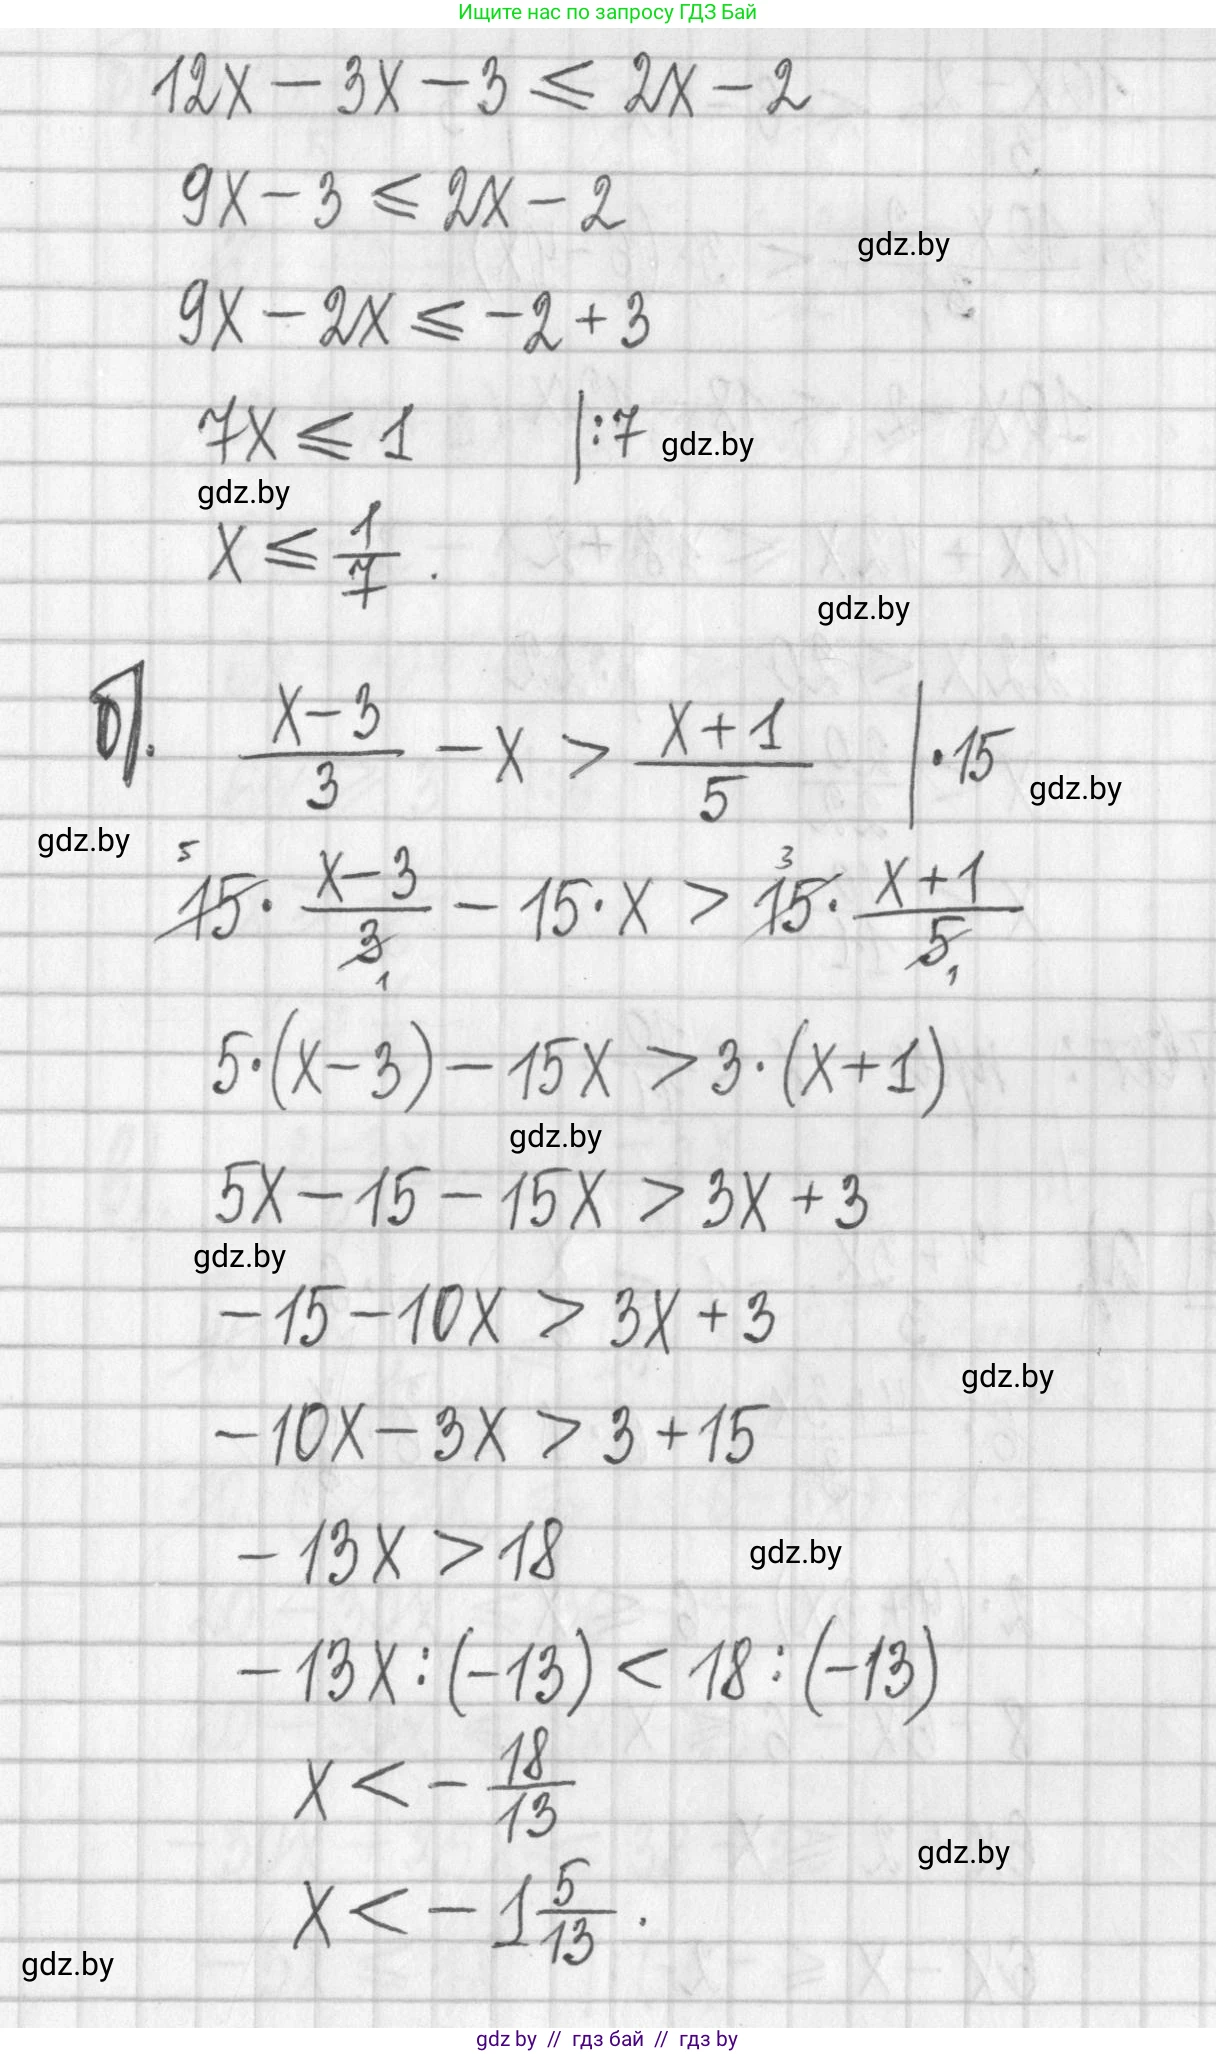 Ищите нас по запросу ГДЗ Бай
12x − 3x − 3 ⩽ 2x − 2
9x − 3 ⩽ 2x − 2
gdz.by
9x − 2x ⩽ −2 + 3
7x ⩽ 1 |:7 gdz.by
gdz.by
x ⩽ 1/7 .
gdz.by
б). (x−3)/3 − x > (x+1)/5 |·15 gdz.by
gdz.by
15⁵ · (x−3)/3₁ − 15·x > 15³ · (x+1)/5₁
5·(x−3) − 15x > 3·(x+1)
gdz.by
5x − 15 − 15x > 3x + 3
gdz.by
−15 − 10x > 3x + 3
gdz.by
−10x − 3x > 3 + 15
−13x > 18 gdz.by
−13x : (−13) < 18 : (−13)
x < − 18/13
gdz.by
x < − 1 5/13 .
gdz.by
gdz by // гдз бай // гдз by